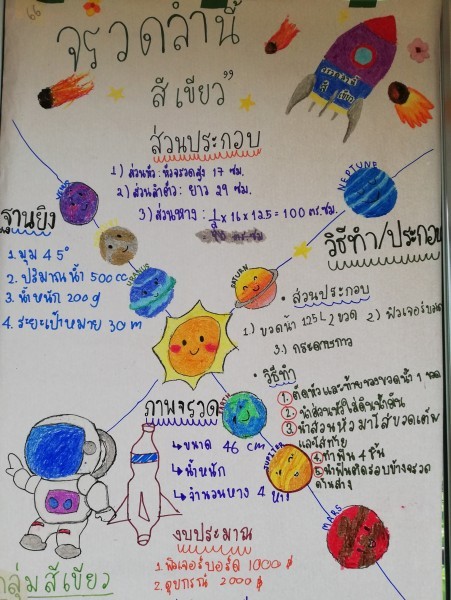 “จรวดลำนี้
สีเขียว”
ส่วนประกอบ
1) ส่วนหัว : หัวจรวดสูง 17 ซม.
2) ส่วนลำตัว : ยาว 29 ซม.
3) ส่วนหาง : 1/2 x 16 x 12.5 = 100 ตร.ซม.
ตร.ซม
VENUS
NEPTUNE
URANUS
SATURN
ฐานยิง
1. มุม 45°
2. ปริมาณน้ำ 500 cc
3. น้ำหนัก 200 g
4. ระยะเป้าหมาย 30 m
วิธีทำ/ประกอบ
• ส่วนประกอบ
1) ขวดน้ำ 1.25 L 2 ขวด 2) ฟิวเจอร์บอร์ด
3.) กระดาษกาว
• วิธีทำ
1. ตัดหัวและท้ายของขวดน้ำ 1 ขวด
2. นำส่วนหัวใส่ดินน้ำมัน
3. นำส่วนหัว มาใส่ขวดเต็ม
และใส่ท้าย
4. ทำฟิน 4 ชิ้น
5. นำฟินติดรอบข้างจรวด
ด้านล่าง
ภาพจรวด
ขนาด 46 cm
น้ำหนัก
จำนวนหาง 4 หาง
JUPITER
MARS
งบประมาณ
1. ฟิวเจอร์บอร์ด 1000 ฿
2. อุปกรณ์ 2000 ฿
กลุ่มสีเขียว